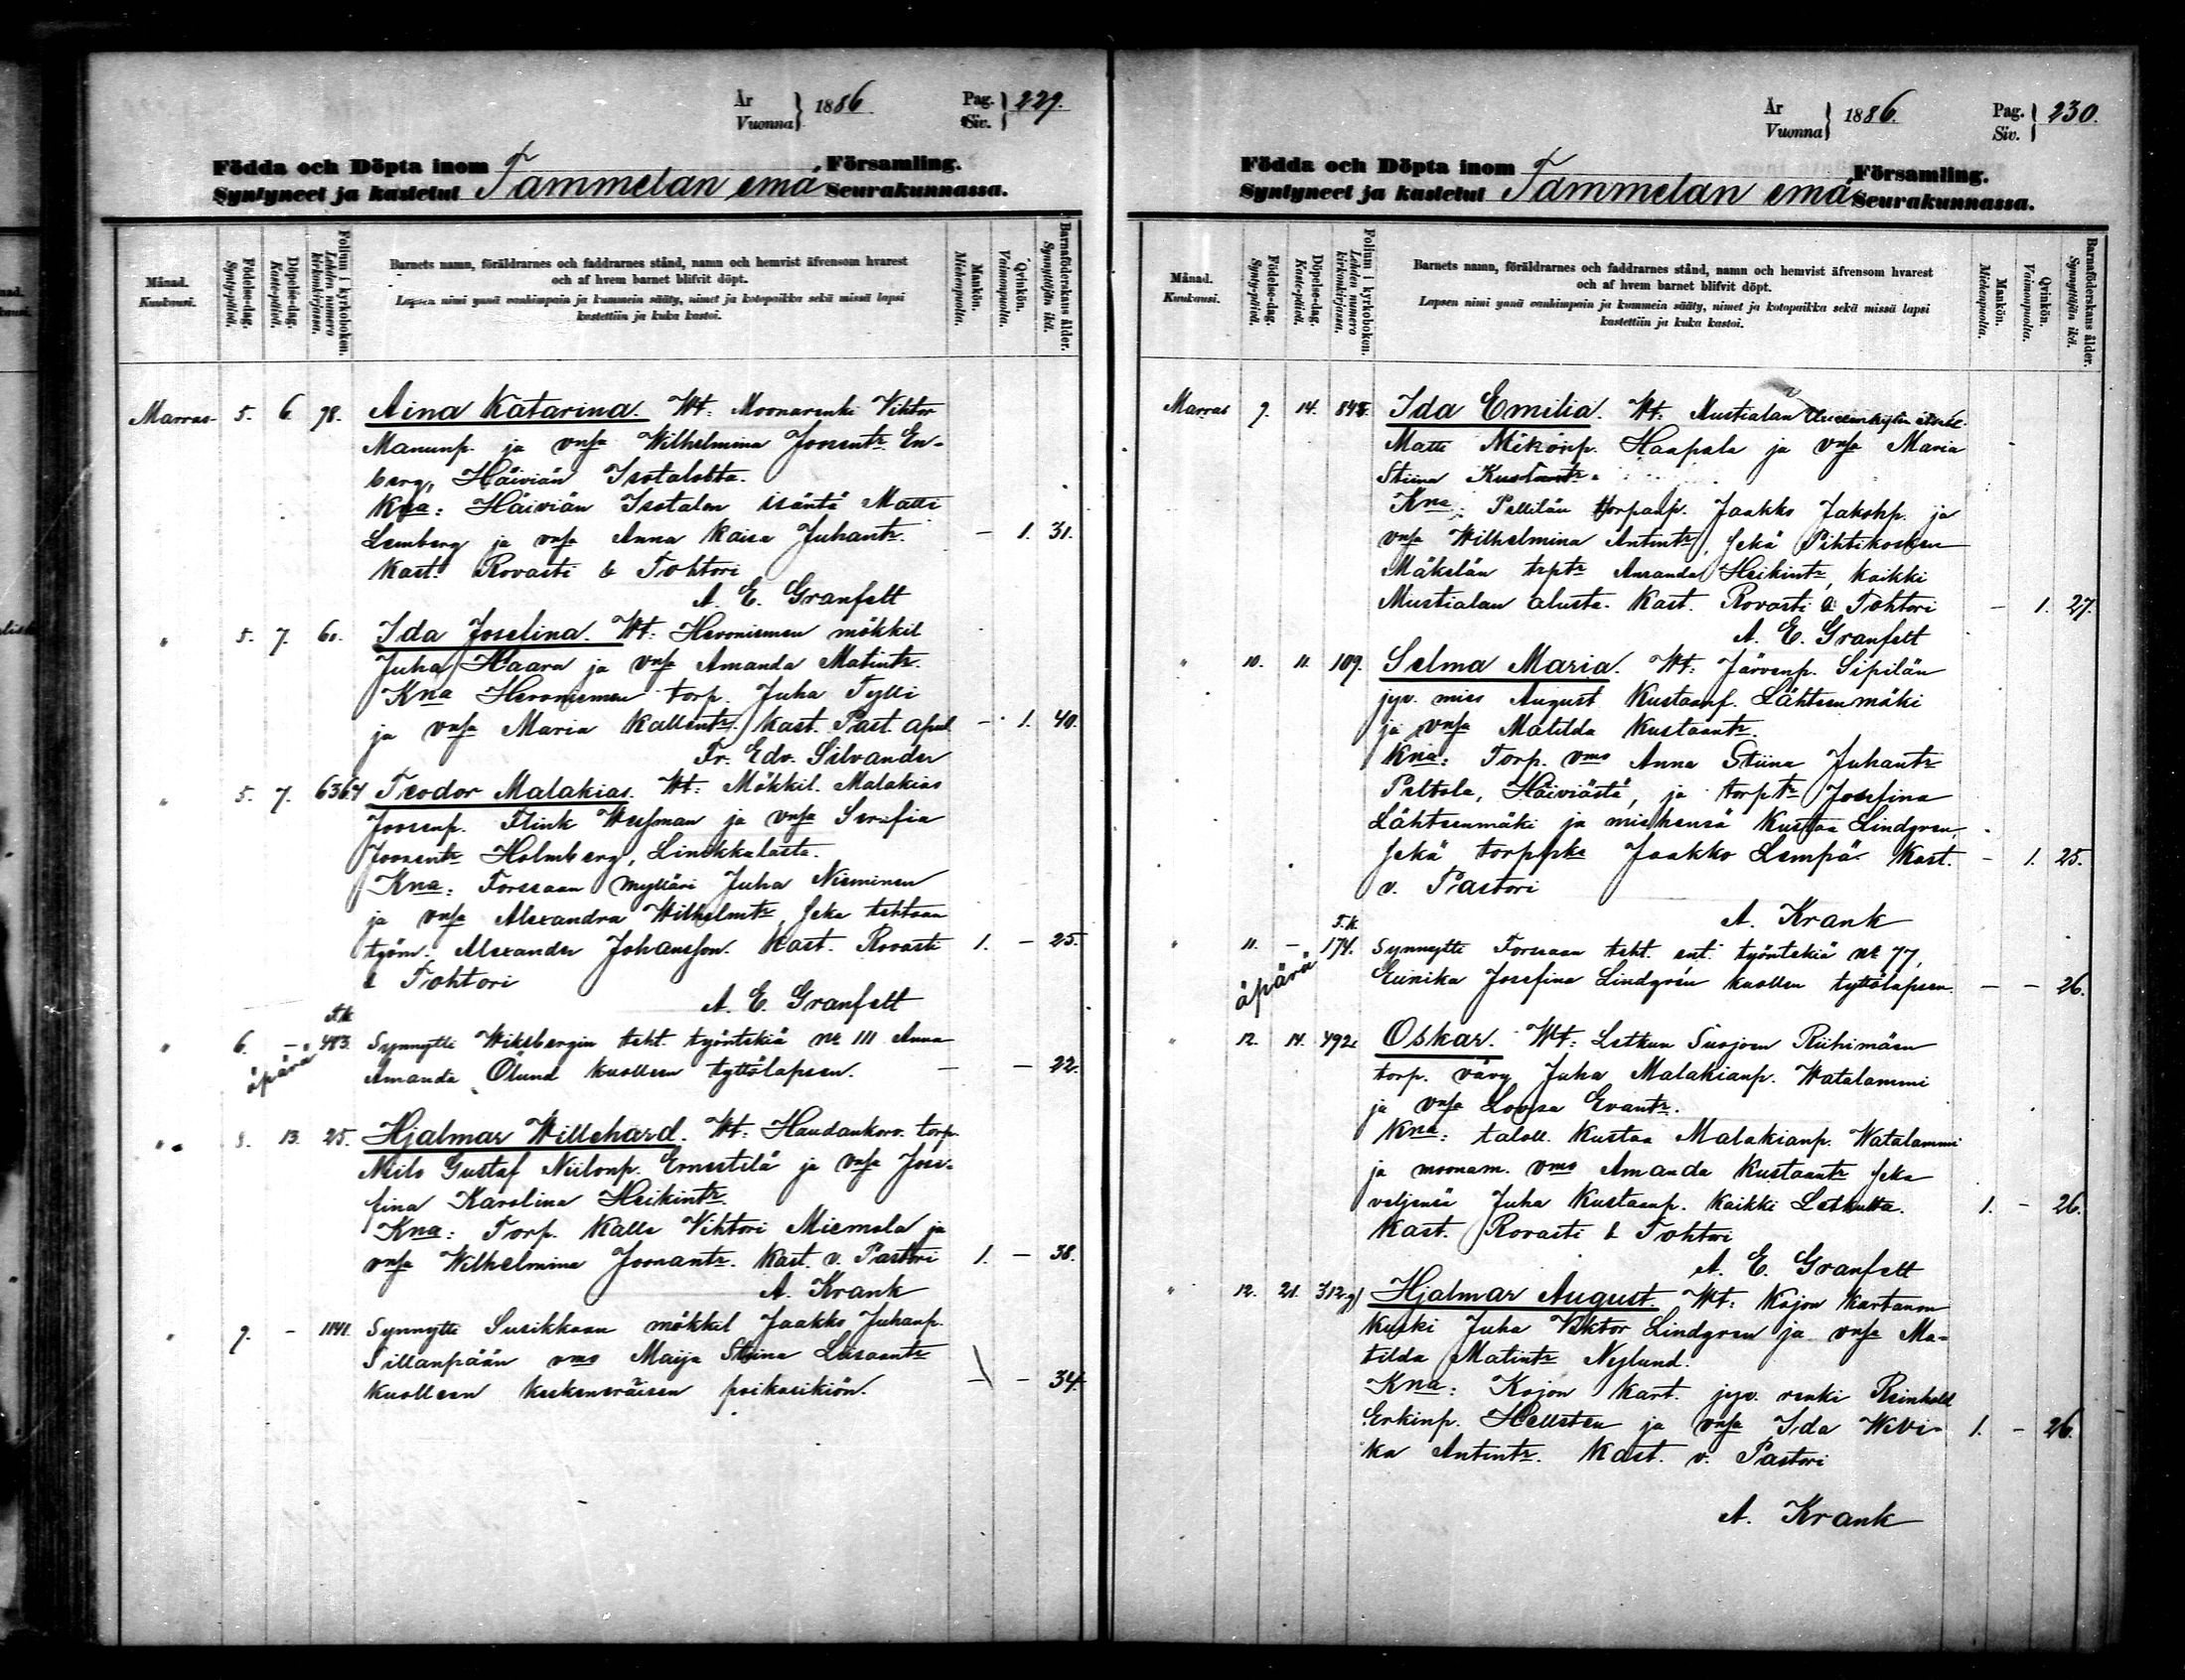 År
Vuonna } 1886.
Pag.
Siv. } 229.
Födda och Döpta inom
Syntyneet ja kastetut Tammelan emä Församling.
Seurakunnassa.
Månad.
Kuukausi.
Födelse-dag.
Synty-päivä.
Döpelse-dag.
Kaste-päivä.
Folium i kyrkoboken.
Lehden numero kirkonkirjassa.
Barnets namn, föräldrarnes och faddrarnes stånd, namn och hemvist äfvensom hvarest
och af hvem barnet blifvit döpt.
Lapsen nimi ynnä vanhimpain ja kummein sääty, nimet ja kotopaikka sekä missä lapsi
kastettiin ja kuka kastoi.
Mankön.
Miehenpuolta.
Qvinkön.
Vaimonpuolta.
Barnaföderskans ålder.
Synnyttäjän ikä.
Marras 5. 6. 78. Aina Katarina. Wt: Moonarenki Vihtor
Manunp. ja vnsa Wilhelmina Joosentr. En-
berg, Häiviän Isotalolta.
Kna: Häiviän Isotalon isäntä Matti
Lemberg ja vnsa Anna Kaisa Juhantr. — 1. 31.
Kast. Rovasti & Tohtori
A. E. Granfelt
" 5. 7. 60. Ida Josefina. Wt: Heronismen mökkil
Juha Haara ja vnsa Amanda Matintr.
Kna Heronismen torp. Juha Tylli
ja vnsa Maria Kallentr. Kast. Past. apul — 1. 40.
Fr. Edv. Silvander
" 5. 7. 6364 Teodor Malakias. Wt: Mökkil. Malakias
Joosenp. Flink Wessman ja vnsa Serafia
Joosentr Holmberg, Linikkalasta.
Kna: Forssaan mylläri Juha Nieminen
ja vnsa Alexandra Wilhelmtr, seka tehtaan
työm. Alexander Johansson. Kast. Rovasti 1. — 25.
& Tohtori
A. E. Granfelt
F.k
" 6. — 483. Synnytti Wiksbergin teht. työntekiä № 111 Anna
äpärä Amanda Ölund kuolleen tyttölapsen. — — 22.
" 8. 13. 25. Hjalmar Willehard. Wt: Haudankorv. torp.
Nils Gustaf Niilonp. Ernestilä ja vnsa Jose-
fina Karolina Heikintr.
Kna: Torp. Kalle Vihtori Miemola ja
vnsa Wilhelmina Joonantr. Kast. v. Pastori 1. — 38.
A. Krank
" 9. — 1141. Synnytti Susikkaan mökkil Jaakko Juhanp.
Sillanpään vmo Maija Stiina Liisaantr
kuolleen keskeneräisen poikasikiön. — — 34.
År
Vuonna } 1886.
Pag.
Siv. } 230.
Födda och Döpta inom
Syntyneet ja kastetut Tammelan emä Församling.
Seurakunnassa.
Månad.
Kuukausi.
Födelse-dag.
Synty-päivä.
Döpelse-dag.
Kaste-päivä.
Folium i kyrkoboken.
Lehden numero kirkonkirjassa.
Barnets namn, föräldrarnes och faddrarnes stånd, namn och hemvist äfvensom hvarest
och af hvem barnet blifvit döpt.
Lapsen nimi ynnä vanhimpain ja kummein sääty, nimet ja kotopaikka sekä missä lapsi
kastettiin ja kuka kastoi.
Mankön.
Miehenpuolta.
Qvinkön.
Vaimonpuolta.
Barnaföderskans ålder.
Synnyttäjän ikä.
Marras 9. 14. Ida Emilia. Wt: Mustialan
Matti Mikonp. Haapala ja vnsa Maria
Stiina Kustaantr.
Kna: Pellilän torpanp. Jaakko Jakohp. ja
vnsa Wilhelmina Antintr, sekä Pihtikosken
Mäkelän tsptr Amanda Heikintr, kaikki
Mustialan alusta. Kast. Rovasti & Tohtori — 1. 27.
A. E. Granfelt
" 10. 11. 109. Selma Maria. Wt: Järvenp. Sipilän
jyv. mies August Kustaanp. Lähteenmäki
ja vnsa Matilda Kustaantr.
Kna: Torp. vmo Anna Stiina Juhantr
Peltola, Häiviästä, ja torptr Josefina
Lähteenmäki ja miehensä Kustaa Lindgren,
sekä torpppka Jaakko Lempä. Kast. — 1. 25.
v. Pastori
A. Krank
F.k.
" 11. — 174. Synnytti Forssaan teht. ent. työntekiä № 77,
äpärä Eunika Josefina Lindgrén kuolleen tyttölapsen. — — 26.
" 12. 14. 492. Oskar. Wt: Letkun Suojoen Riihimäen
torp. vävy Juha Malakianp. Watalammi
ja vnsa Lovisa Evantr.
Kna: taloll. Kustaa Malakianp. Watalammi
ja moonam. vmo Amanda Kustaantr seka
veljensä Juha Kustaanp. kaikki Letkulta. 1. — 26.
Kast. Rovasti & Tohtori
A. E. Granfelt
" 12. 21. 312. Hjalmar August. Wt: Kojon Kartanon
kuski Juha Viktor Lindgren ja vnsa Ma-
tilda Matintr Nylund.
Kna: Kojon Kart. jyv. renki Reinhold
Erkinp. Hellsten ja vnsa Ida Wivi- 1. — 26.
ka Antintr. Kast. v. Pastori
A. Krank